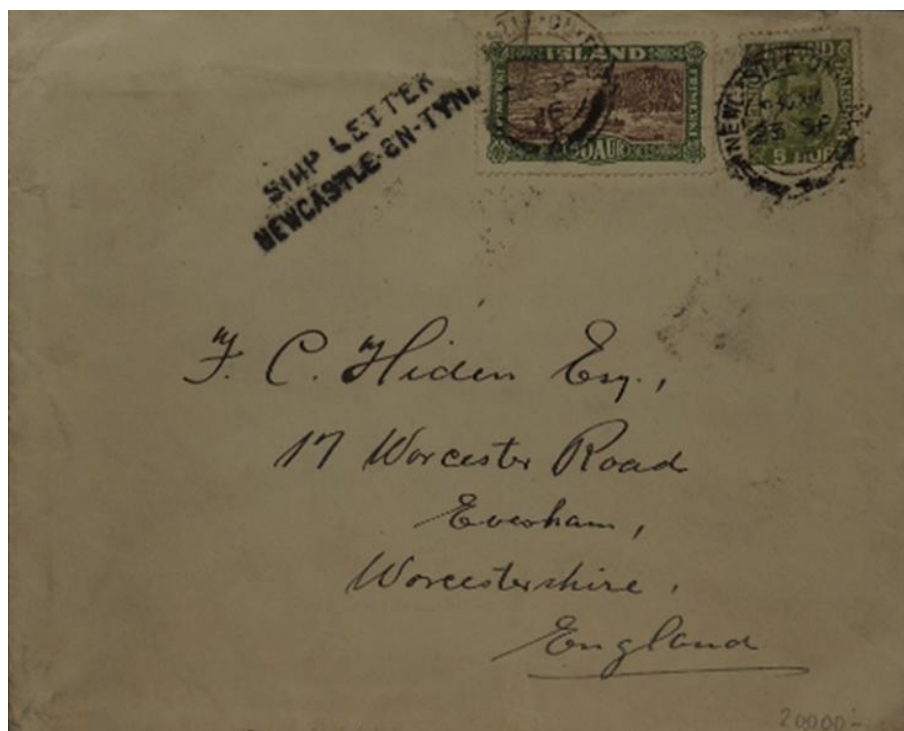 SHIP LETTER
NEWCASTLE-ON-TYNE
ISLAND
FRIMERKI
AUR
NEWCASTLE
SP
5 AUR
F. C. Hiden Esq.,
17 Worcester Road
Evesham,
Worcestershire.
England
20000-